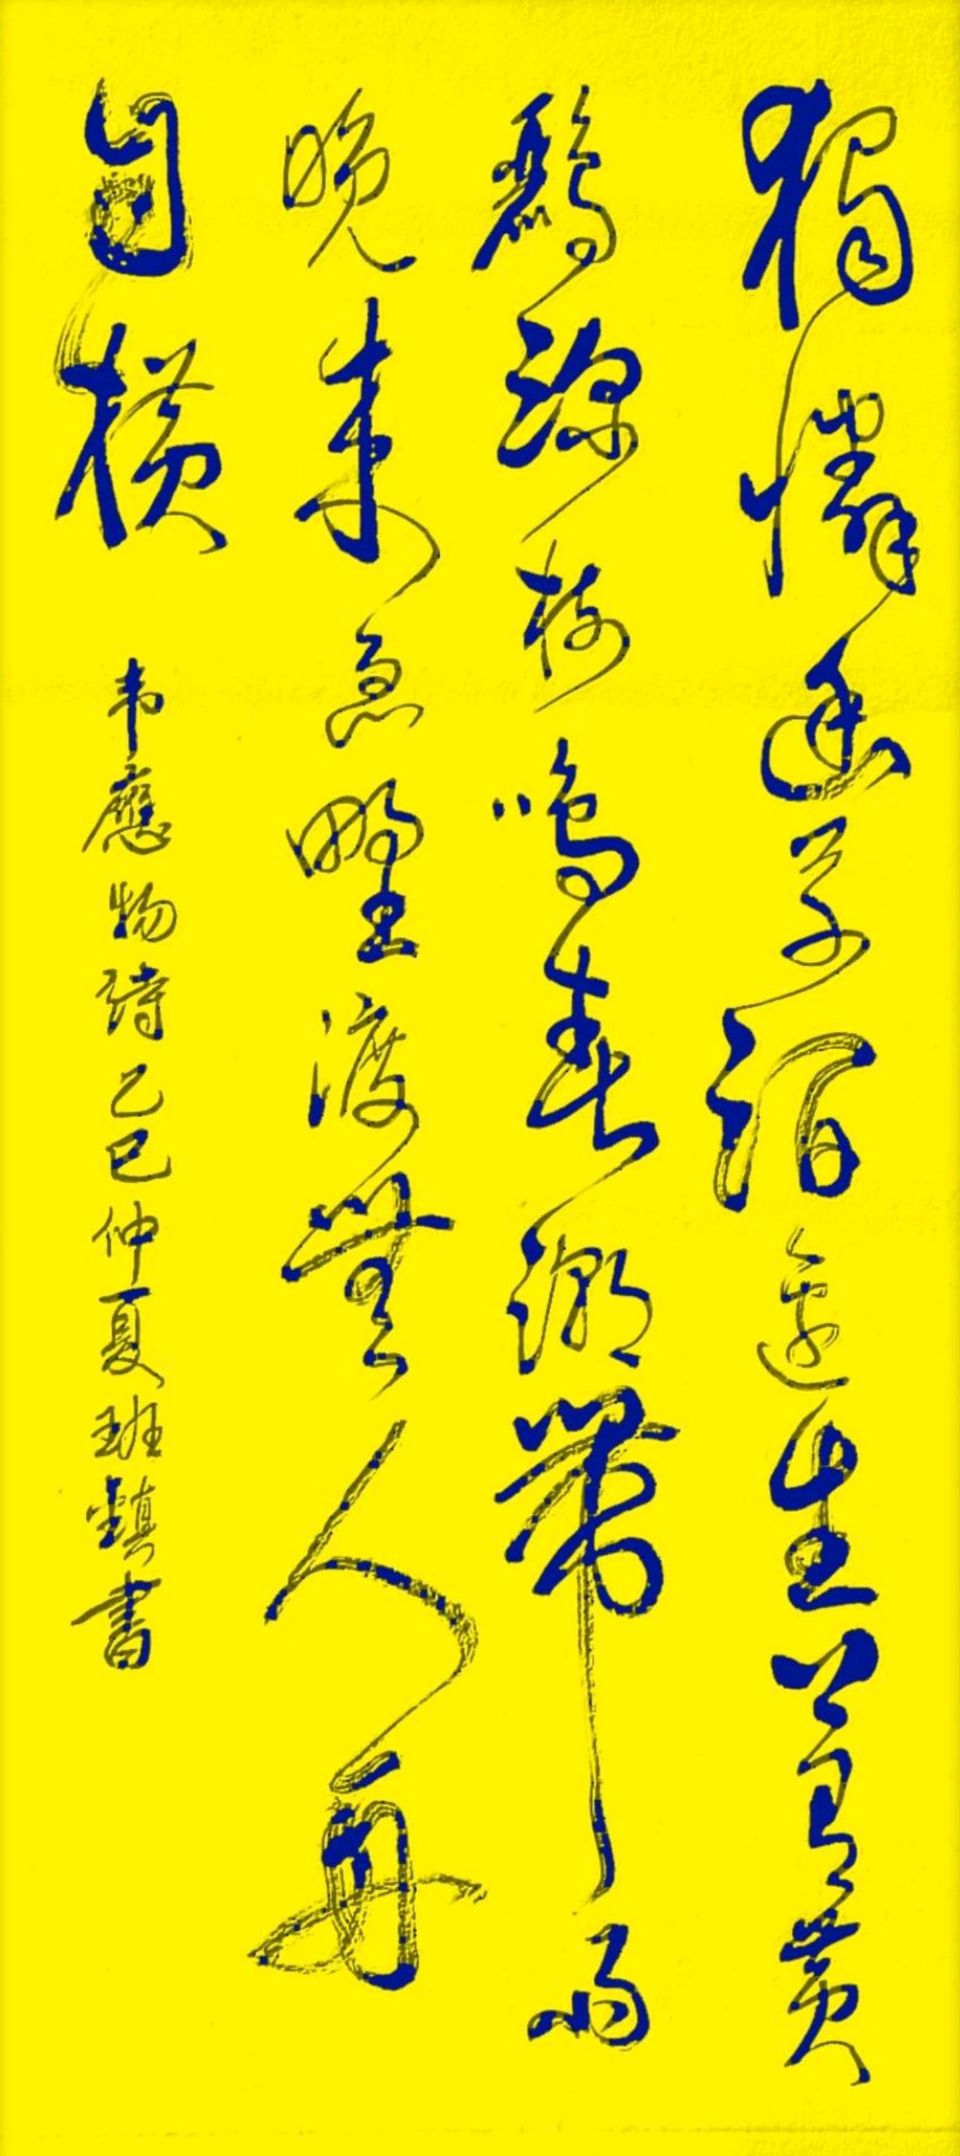 獨憐幽草澗邊生上有黃
鸝深樹鳴春潮帶雨
晚來急野渡無人舟
自橫 韦應物詩乙巳仲夏班鎮書